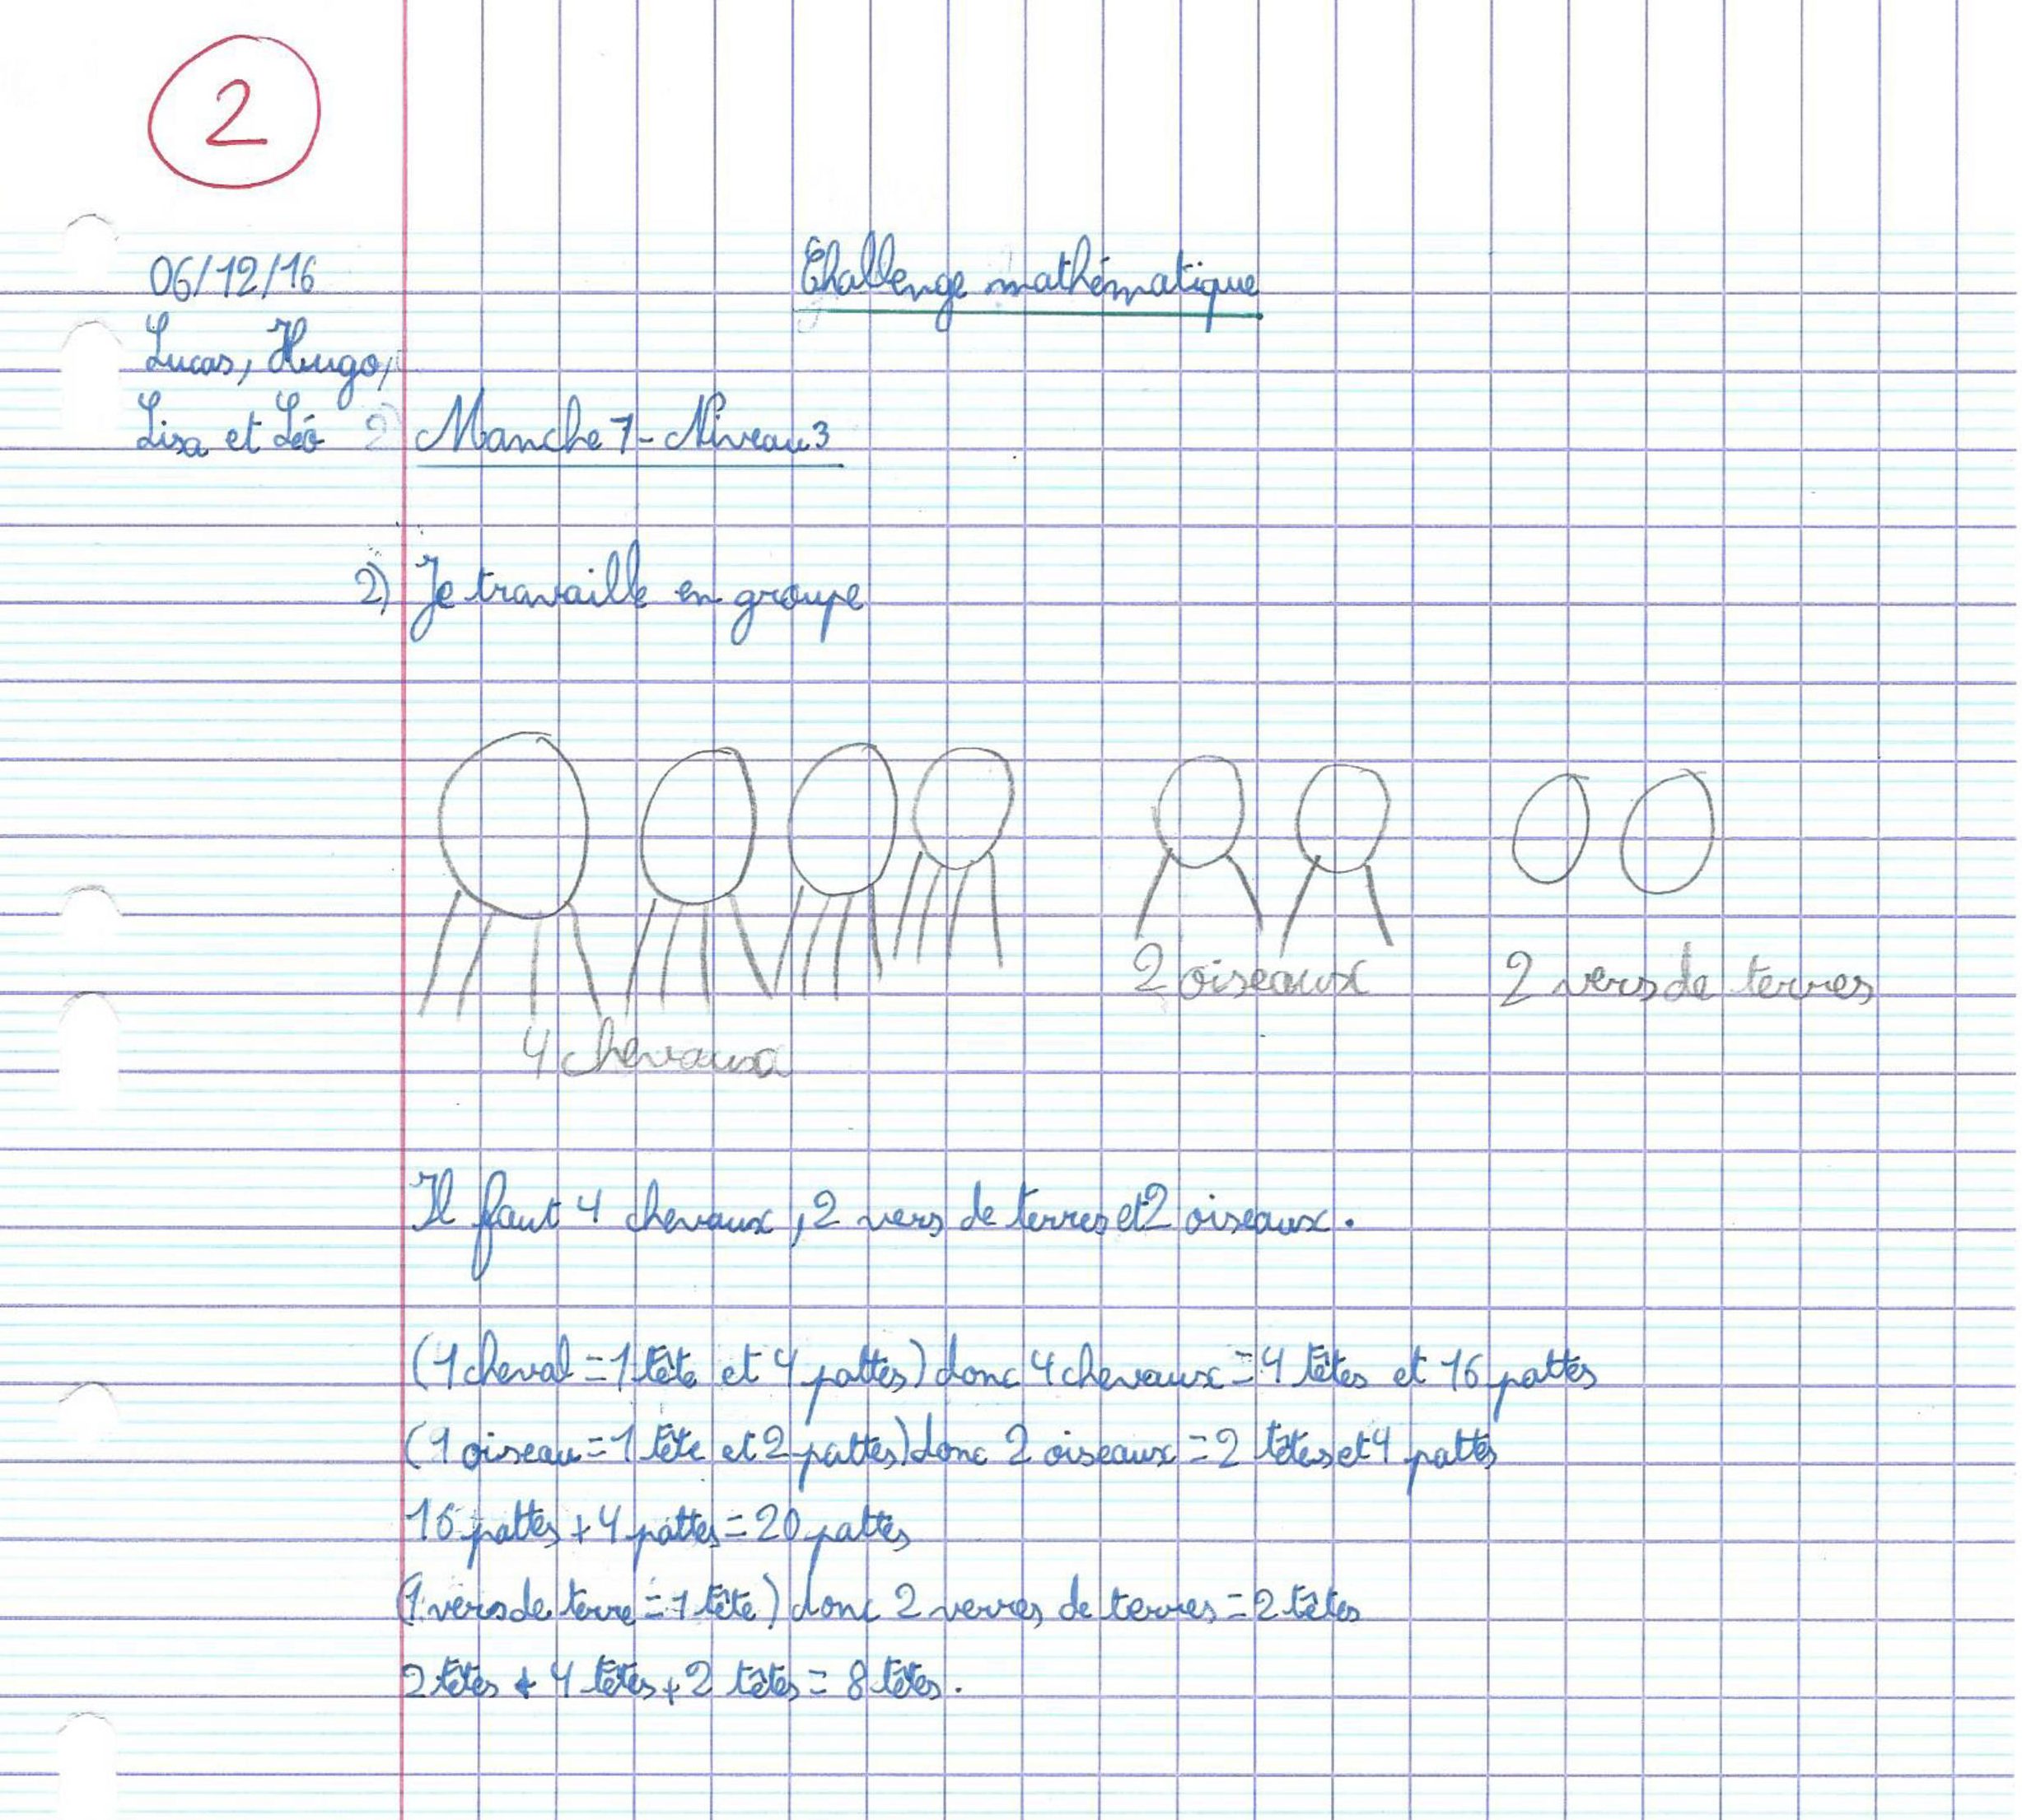 2
06/12/16
Challenge mathématique
Lucas, Hugo,
Lisa et Léo
Manche 1 - Niveau 3
2) Je travaille en groupe
2 oiseaux
2 vers de terres
4 chevaux
Il faut 4 chevaux, 2 vers de terres et 2 oiseaux.
(1 cheval = 1 tête et 4 pattes) donc 4 chevaux = 4 têtes et 16 pattes
(1 oiseau = 1 tête et 2 pattes) donc 2 oiseaux = 2 têtes et 4 pattes
16 pattes + 4 pattes = 20 pattes
(1 vers de terre = 1 tête) donc 2 verres de terres = 2 têtes
2 têtes + 4 têtes + 2 têtes = 8 têtes.